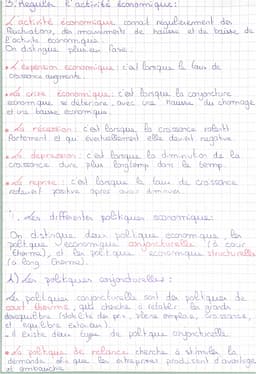 3. Réguler l'activité économique:
L'activité économique connait regulierement des
fluctuations, des mouvements de hausse et de baisse de
l'activité economique.
On distingue plusieurs fase:
• L'expension economique: c'est lorsque le taux de
croissance augmente.
• La crise économique: c'est lorsque la conjoncture
economique se deteriore, avec une hausse du chomage
et une baisse economique.
• La récession: c'est lorsque la croissance ralentit
fortement et qui eventuellement elle devient negative
• La depression: c'est lorsque la diminution de la
croissance dure plus longtemp dans le temp.
• La reprise: c'est lorsque le taux de croissance
redevient positive apres avoir diminuer.
1. Les differentes politiques economiques:
On distingue deux politique economique, les
politique economique conjoncturelle (à cour
therme), et les politique economique structurelle
(a long therme).
A) Les politiques conjoncturelles:
Les politiques conjoncturelle sont des politiques de
court therme, qui cherche a retablir les grands
desequilibre (stabilite des prix, pleine emploie, croissance,
et equilibre exterieur).
Il existe deux type de politique conjoncturelle
• La politique de relance: cherche à stimuler la
demande afin que les entreprises produisent d'avantage
et embauche